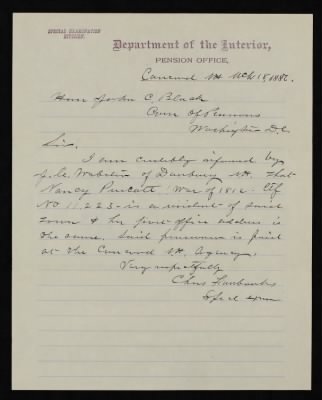 SPECIAL EXAMINATION
DIVISION.
Department of the Interior,
PENSION OFFICE,
Concord NH Mch 15, 188
Hon John C. Black
Com of Pensions
Washington D.C.
Sir,
I am credibly informed by
Webster of Danbury NH. that
Nancy War of 1812 Ctf
No 11.223 is a resident of said
town & her post office address is
the same. Said pensioner is paid
at the Concord N.H. Agency.
Very respectfully
Chas Fairbanks
Spcl Exmr